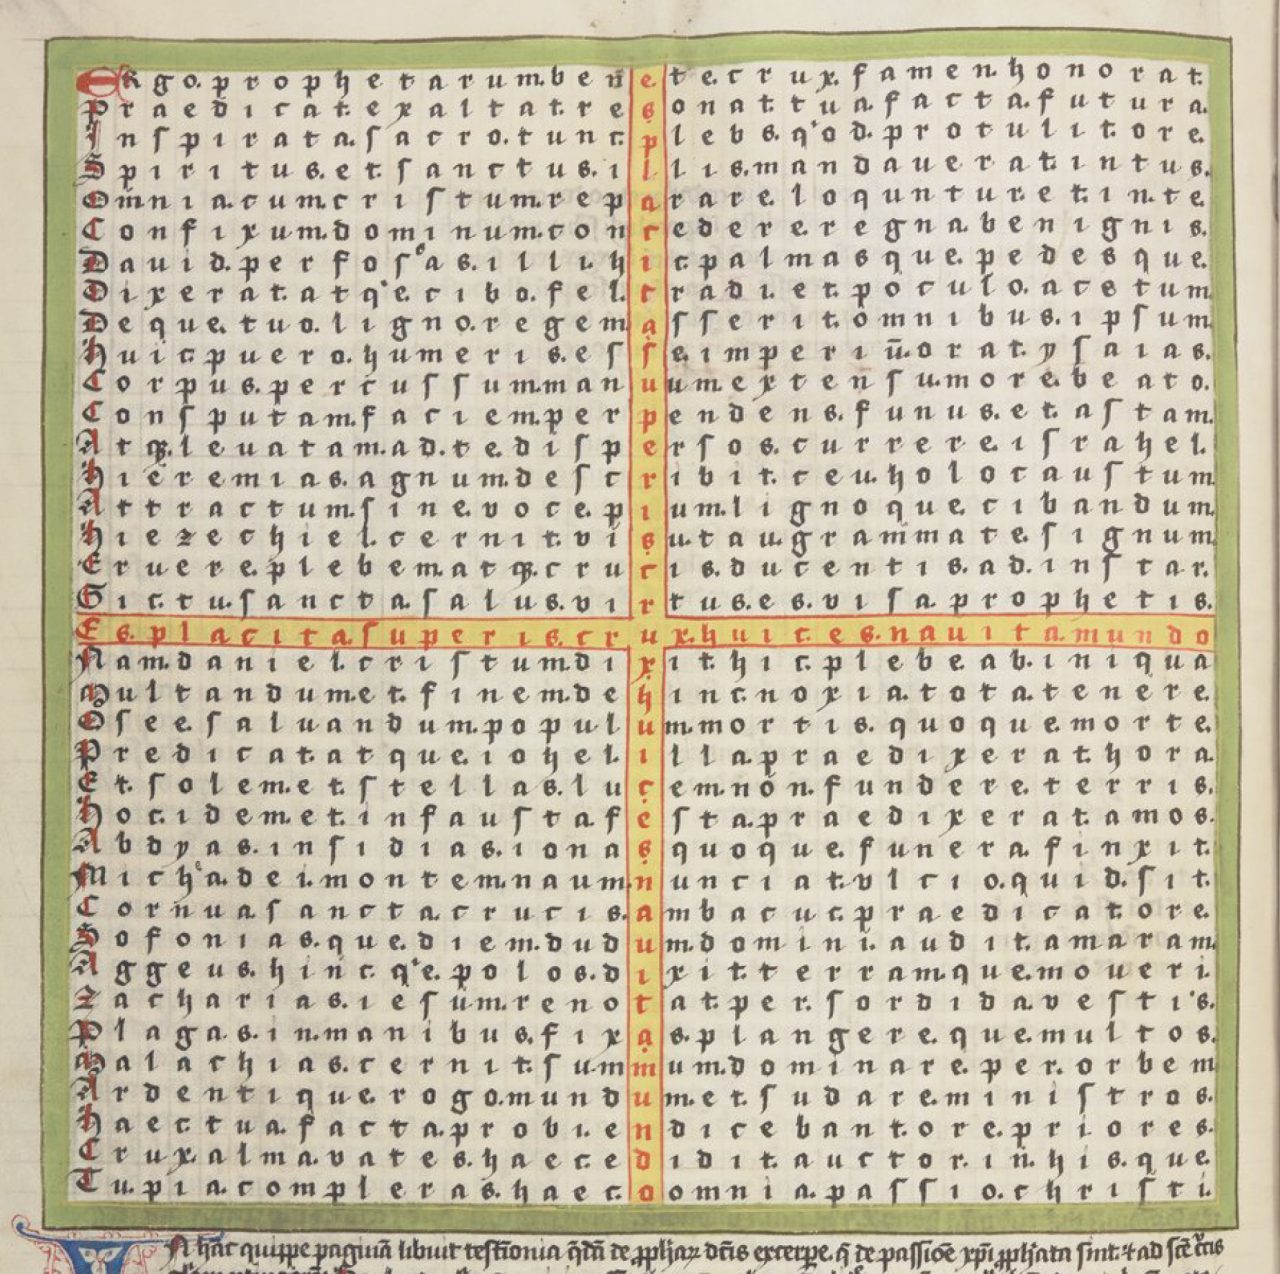 Ergo. prophetarum. ben̄e te. crux. famen. honorat.
Praedicat. exaltat. resonat. tua. facta. futura.
Inspirata. sacro. tunc. plebs. qͦod. protulit. ore.
Spiritus. et. sanctus. illis. mandauerat. intus.
Om̄nia. cum. cristum. reparare. loquntur. et. in. te.
Confixum. dominum. concedere. regna. benignis.
Dauid. per fossas. illi. hic. palmasque. pedesque.
Dixerat. atqͥe. cibo. fel. tradi. et. poculo. acetum
Deque. tuo. ligno. regem asserit. omnibus. ipsum
Huic. puero. humeris. esse. imperiū. orat. ysaias.
Corpus. percussum. manuum extensu. more. beato.
Consputam. faciem. perpendens. funus. et. astam.
Atqꝫ. leuatam. ad. te. dispersos. currere. israhel.
Hieremias. agnum. describit. ceu. holocaustum
Attractum. sine. voce. pium. lignoque. cibandum.
Hiezechiel. cernit. visu. tau. grammate. signum.
Eruere. plebem. atqꝫ. crucis. ducentis. ad. instar.
Sic. tu. sancta. salus. virtus. es. visa. prophetis.
Es. placita. superis. crux. huic. es. nauita. mundo
Nam. daniel. cristum. dixit. hic. plebe. ab. iniqua
Multandum. et. finem. dehinc. noxia. tota. tenere.
Osee. saluandum. populum. mortis. quoque. morte.
Predicat. atque. iohel. illa. praedixerat. hora.
Et. solem. et. stellas. lucem. non. fundere. terris.
Hoc. idem. et. infausta festa. praedixerat. amos.
Abdyas. insidias. ionas quoque. funera. finxit.
Micha. dei. montem. naum. nunciat. vlcio. quid. sit.
Cornua. sancta. crucis. ambacuc. praedicat. ore.
Sofonias. que. diem. dudum. domini. audit. amaram.
Aggeus. hinc. qͥe. polos. dixit. terramque. moueri.
Zacharias. iesum. renotat. per. sordida. vestis.
Plagas. in. manibus. fixas. plangere. que. multos.
Malachias. cernit. summum. dominare. per. orbem
Ardentique. rogo. mundum. et. sudare. ministros.
Haec. tua. facta. probi. en dicebant. ore. priores.
Crux. alma. vates. haec. edidit. auctor. in̄. his. que.
Tu. pia. compleras. haec. o omnia. passio. christi.
hac quippe paginā libuit